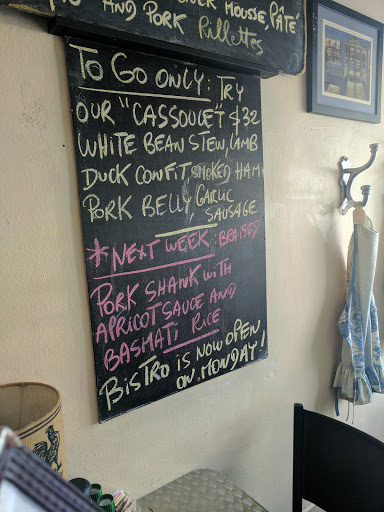 MOUSSE, PÂTÉ
AND PORK Rillettes
TO GO ONLY: TRY
OUR "CASSOULET" $32
WHITE BEAN STEW, LAMB
DUCK CONFIT SMOKED HAM
PORK BELLY, GARLIC
SAUSAGE
*NEXT WEEK: BRAISED
PORK SHANK WITH
APRICOT SAUCE AND
BASMATI RICE
BISTRO IS NOW OPEN
ON MONDAY!